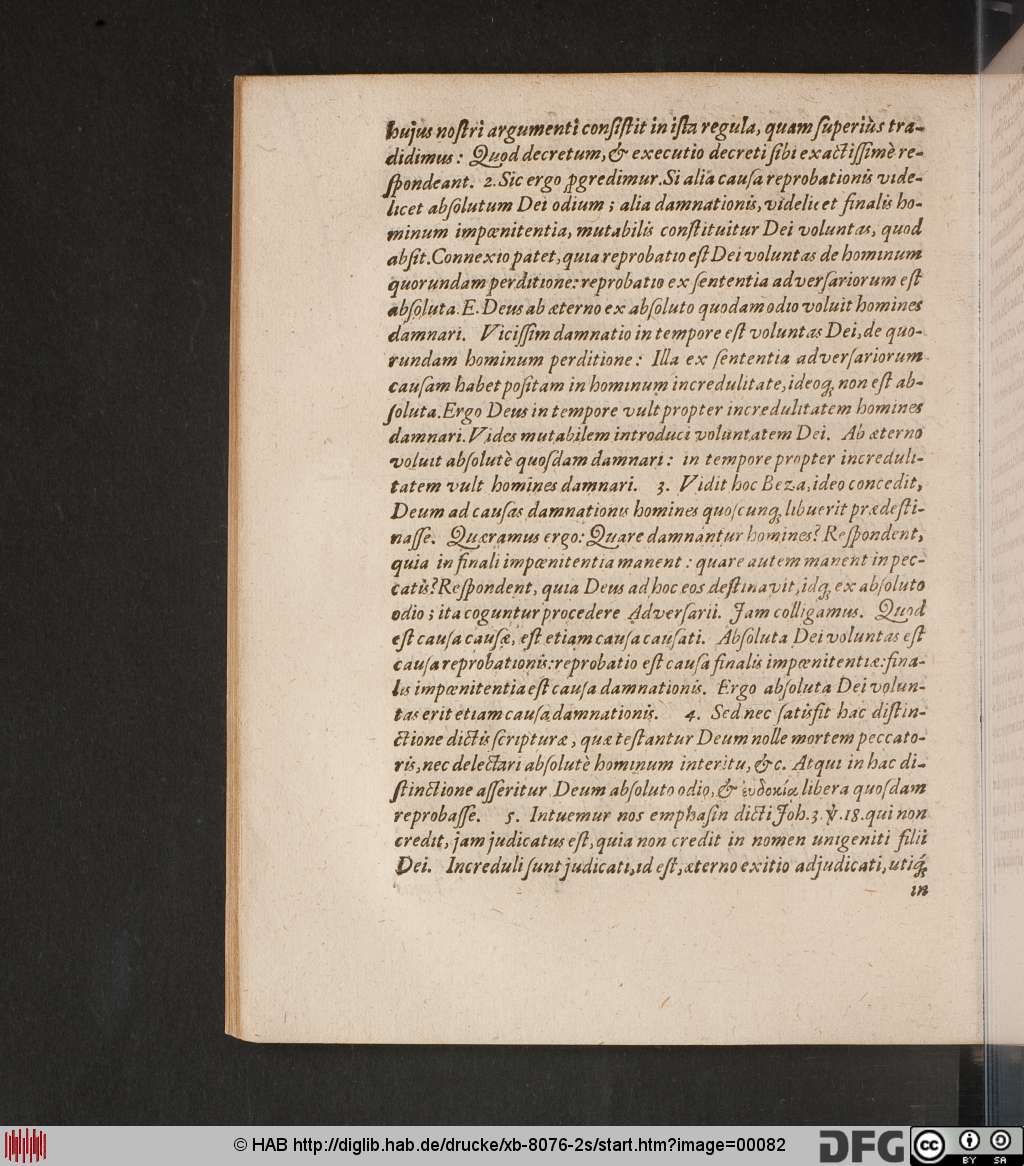 hujus noſtri argumenti conſiſtit in iſta regula, quam ſuperiùs tra-
didimus: Quod decretum, & executio decreti ſibi exactiſſimè re-
ſpondeant. 2. Sic ergo ꝓgredimur. Si alia cauſa reprobationis vide-
licet abſolutum Dei odium; alia damnationis, videlicet finalis ho-
minum impœnitentia, mutabilis conſtituitur Dei voluntas, quod
abſit. Connexio patet, quia reprobatio eſt Dei voluntas de hominum
quorundam perditione: reprobatio ex ſententia adverſariorum eſt
abſoluta. E. Deus ab æterno ex abſoluto quodam odio voluit homines
damnari. Viciſſim damnatio in tempore eſt voluntas Dei, de quo-
rundam hominum perditione: Illa ex ſententia adverſariorum
cauſam habet poſitam in hominum incredulitate, ideoq́; non eſt ab-
ſoluta. Ergo Deus in tempore vult propter incredulitatem homines
damnari. Vides mutabilem introduci voluntatem Dei. Ab æterno
voluit abſolutè quoſdam damnari: in tempore propter increduli-
tatem vult homines damnari. 3. Vidit hoc Beza, ideo concedit,
Deum ad cauſas damnationis homines quoſcunq́; libuerit prædeſti-
naſſe. Quæramus ergo: Quare damnantur homines? Reſpondent,
quia in finali impœnitentia manent: quare autem manent in pec-
catis? Reſpondent, quia Deus ad hoc eos deſtinavit, idq́; ex abſoluto
odio; ita coguntur procedere Adverſarii. Jam colligamus. Quod
eſt cauſa cauſæ, eſt etiam cauſa cauſati. Abſoluta Dei voluntas eſt
cauſa reprobationis: reprobatio eſt cauſa finalis impœnitentiæ: fina-
lis impœnitentia eſt cauſa damnationis. Ergo abſoluta Dei volun-
tas erit etiam cauſa damnationis. 4. Sed nec ſatisfit hac diſtin-
ctione dictis ſcripturæ, quæ teſtantur Deum nolle mortem peccato-
ris, nec delectari abſolutè hominum interitu, &c. Atqui in hac di-
ſtinctione aſſeritur Deum abſoluto odio, & ἐυδοκίᾳ libera quoſdam
reprobaſſe. 5. Intuemur nos emphaſin dicti Joh. 3. ℣. 18. qui non
credit, jam judicatus eſt, quia non credit in nomen unigeniti filii
Dei. Increduli ſunt judicati, id eſt, æterno exitio adjudicati, utiq́;
in
© HAB http://diglib.hab.de/drucke/xb-8076-2s/start.htm?image=00082
DFG
cc
BY SA